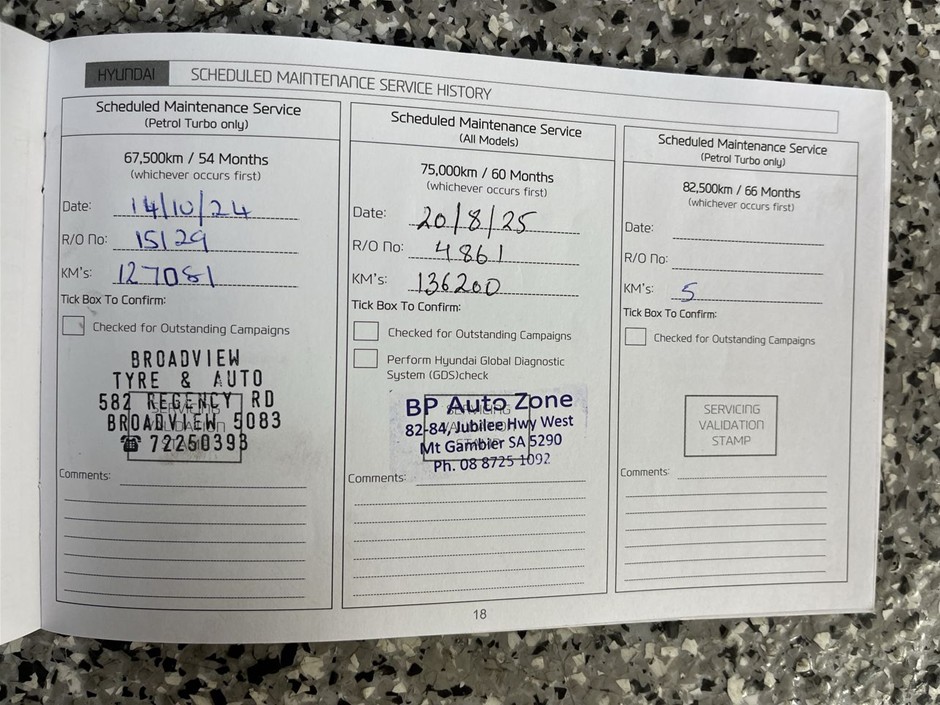 HYUNDAI SCHEDULED MAINTENANCE SERVICE HISTORY
Scheduled Maintenance Service
(Petrol Turbo only)
67,500km / 54 Months
(whichever occurs first)
Date: 14/10/24
R/O No: 15129
KM's: 127081
Tick Box To Confirm:
Checked for Outstanding Campaigns
BROADVIEW
TYRE & AUTO
582 REGENCY RD
BROADVIEW 5083
☎ 72250393
SERVICING
VALIDATION
STAMP
Comments:
Scheduled Maintenance Service
(All Models)
75,000km / 60 Months
(whichever occurs first)
Date: 20/8/25
R/O No: 4861
KM's: 136200
Tick Box To Confirm:
Checked for Outstanding Campaigns
Perform Hyundai Global Diagnostic
System (GDS)check
BP Auto Zone
82-84, Jubilee Hwy West
Mt Gambier SA 5290
Ph. 08 8725 1092
SERVICING
VALIDATION
STAMP
Comments:
Scheduled Maintenance Service
(Petrol Turbo only)
82,500km / 66 Months
(whichever occurs first)
Date:
R/O No:
KM's: 5
Tick Box To Confirm:
Checked for Outstanding Campaigns
SERVICING
VALIDATION
STAMP
Comments:
18